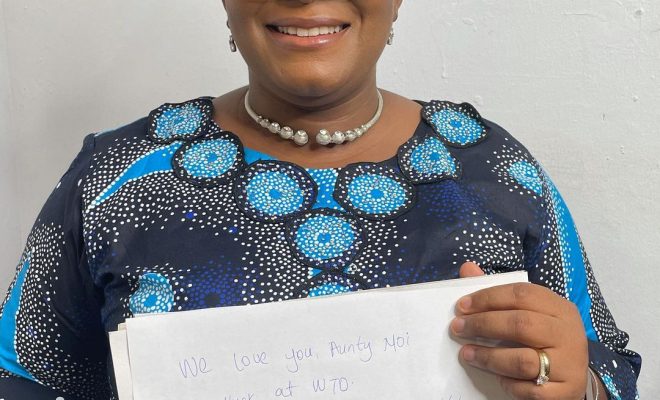 We love you, Aunty Moi
at WTO.